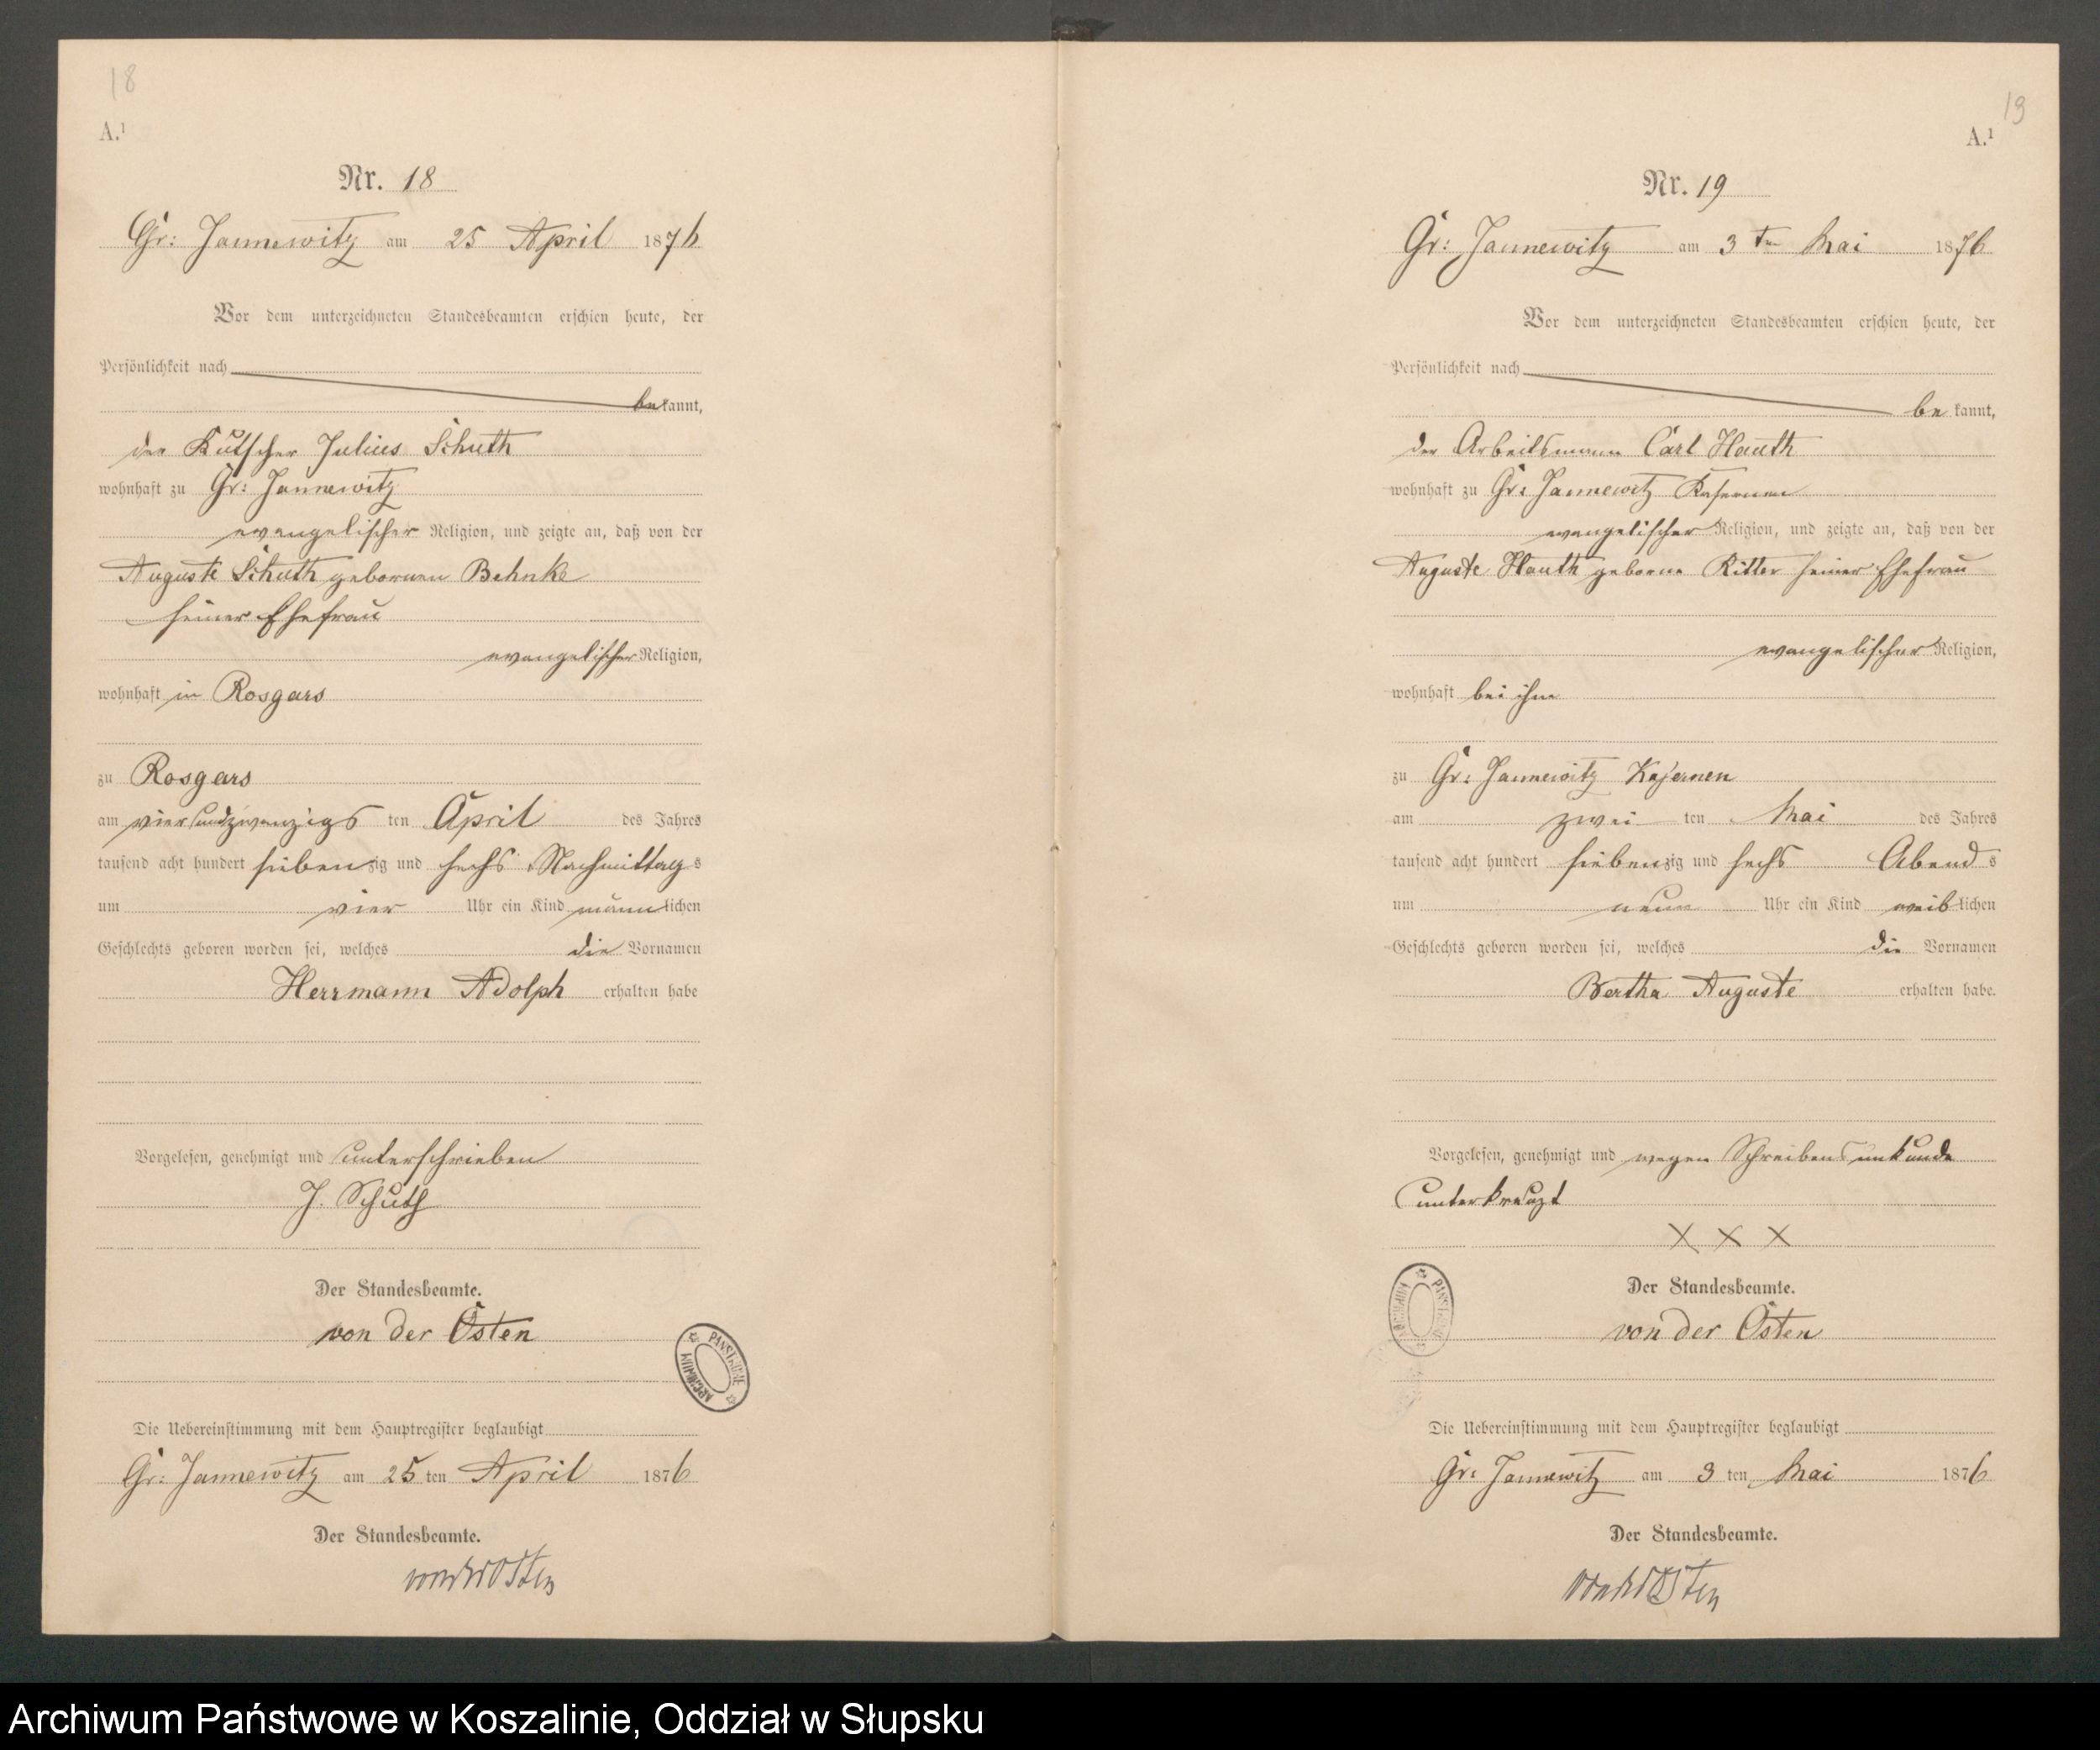 18
A.¹
Nr. 18
Gr: Jannewitz am 25 April 1876
Vor dem unterzeichneten Standesbeamten erschien heute, der
Persönlichkeit nach
bekannt,
der Kutscher Julius Schuth
wohnhaft zu Gr: Jannewitz
evangelischer Religion, und zeigte an, daß von der
Auguste Schuth gebornen Behnke
seiner Ehefrau
evangelischer Religion,
wohnhaft in Rosgars
zu Rosgars
am vierundzwanzigsten April des Jahres
tausend acht hundert siebenzig und sechs Nachmittags
um vier Uhr ein Kind männlichen
Geschlechts geboren worden sei, welches die Vornamen
Herrmann Adolph erhalten habe
Vorgelesen, genehmigt und unterschrieben
J. Schuth
Der Standesbeamte.
von der Osten
ARCHIWUM PAŃSTWOWE
Die Uebereinstimmung mit dem Hauptregister beglaubigt
Gr: Jannewitz am 25ten April 1876
Der Standesbeamte.
von der Osten
19
A.¹
Nr. 19
Gr: Jannewitz am 3ten Mai 1876
Vor dem unterzeichneten Standesbeamten erschien heute, der
Persönlichkeit nach
bekannt,
der Arbeitsmann Carl Hauth
wohnhaft zu Gr: Jannewitz Kasernen
evangelischer Religion, und zeigte an, daß von der
Auguste Hauth geborne Ritter seiner Ehefrau
evangelischer Religion,
wohnhaft bei ihm
zu Gr: Jannewitz Kasernen
am zweiten Mai des Jahres
tausend acht hundert siebenzig und sechs Abends
um neun Uhr ein Kind weiblichen
Geschlechts geboren worden sei, welches die Vornamen
Bertha Auguste erhalten habe.
Vorgelesen, genehmigt und wegen Schreibensunkunde
unterkreuzt
X X X
Der Standesbeamte.
von der Osten
ARCHIWUM PAŃSTWOWE
Die Uebereinstimmung mit dem Hauptregister beglaubigt
Gr: Jannewitz am 3ten Mai 1876
Der Standesbeamte.
von der Osten
Archiwum Państwowe w Koszalinie, Oddział w Słupsku